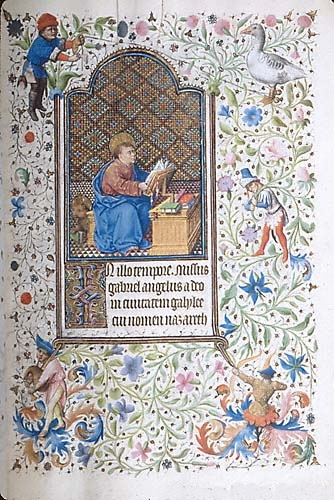 IN illo tempore. Missus
gabriel angelus a deo
in ciuitatem galylee
cui nomen nazareth